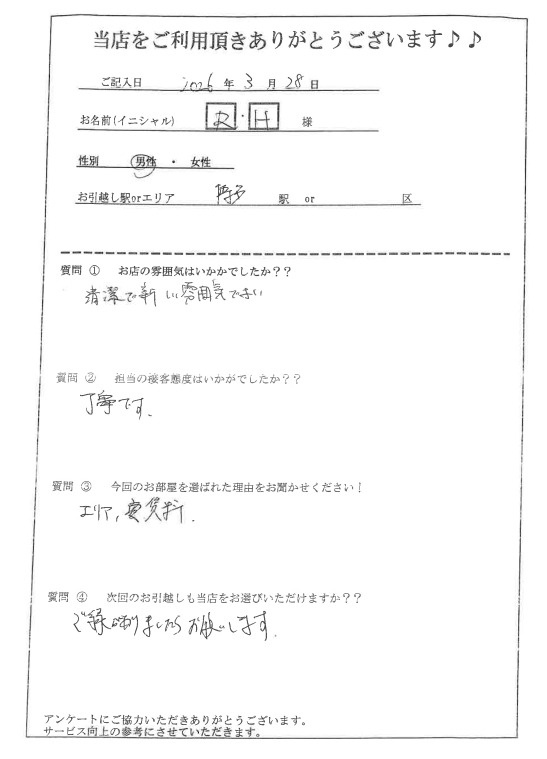 当店をご利用頂きありがとうございます♪♪
ご記入日 2026年3月28日
お名前(イニシャル) R・H 様
性別 男性・女性
お引越し駅orエリア 駅 or 区
質問① お店の雰囲気はいかかでしたか??
清潔で新しい雰囲気でよい
質問② 担当の接客態度はいかがでしたか??
丁寧です.
質問③ 今回のお部屋を選ばれた理由をお聞かせください!
エリア,賃料.
質問④ 次回のお引越しも当店をお選びいただけますか??
ご縁がありましたらお願いします.
アンケートにご協力いただきありがとうございます。
サービス向上の参考にさせていただきます。